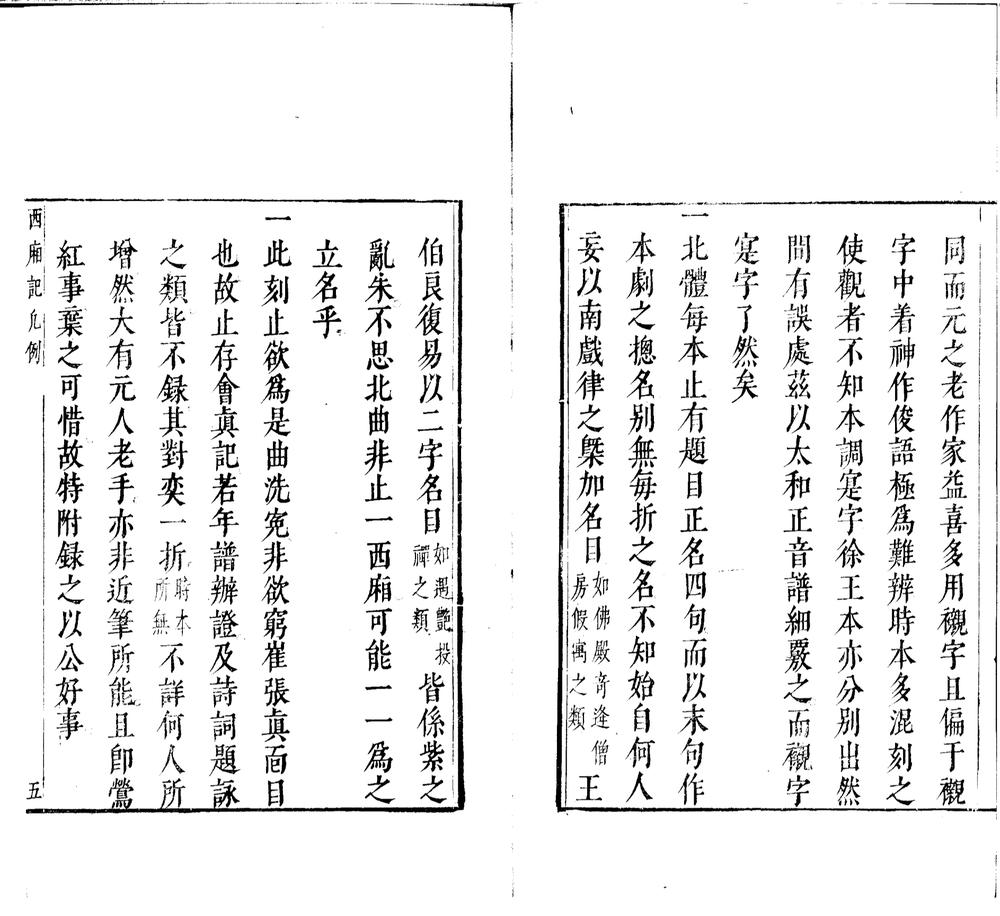 同而元之老作家益喜多用襯字且偏于襯
字中着神作俊語極爲難辨時本多混刻之
使觀者不知本調寔字徐王本亦分別出然
間有誤處茲以太和正音譜細覈之而襯字
寔字了然矣
一北體每本止有題目正名四句而以末句作
本劇之摠名別無每折之名不知始自何人
妄以南戲律之槩加名目如佛殿奇逢僧房假寓之類王
伯良復易以二字名目如遇艷投禪之類皆係紫之
亂朱不思北曲非止一西廂可能一一爲之
立名乎
一此刻止欲爲是曲洗寃非欲窮崔張真面目
也故止存會真記若年譜辦證及詩詞題詠
之類皆不録其對奕一折時本所無不詳何人所
增然大有元人老手亦非近筆所能且卽鶯
紅事葉之可惜故特附録之以公好事
西廂記凡例
五